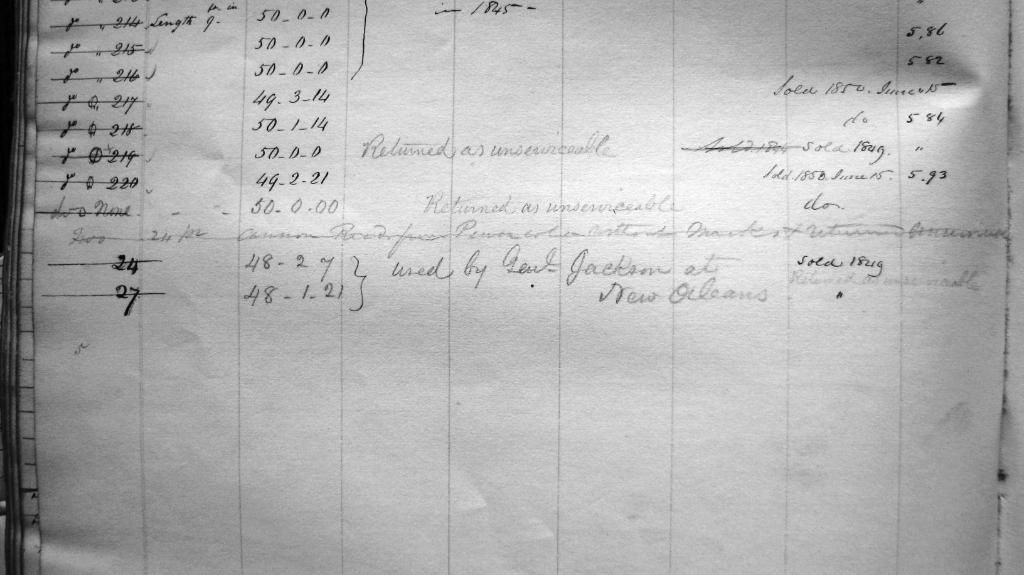 " 214 Length 9- ft in 50-0-0 in 1845- "
" 215 50-0-0 5,86
" 216 50-0-0 5 82
217 49-3-14 Sold 1850. June 15
218 50-1-14 do 5 84
219 50-0-0 Returned as unserviceable Sold 1849. "
220 49-2-21 Sold 1850 June 15. 5.93
do o None - - 50-0.00 Returned as unserviceable do.
Two 24 pr Cannon Recd from Pensacola without Marks
24 48-2 7 } used by Genl. Jackson at Sold 1849
27 48-1-21 New Orleans Returned as unserviceable "
5